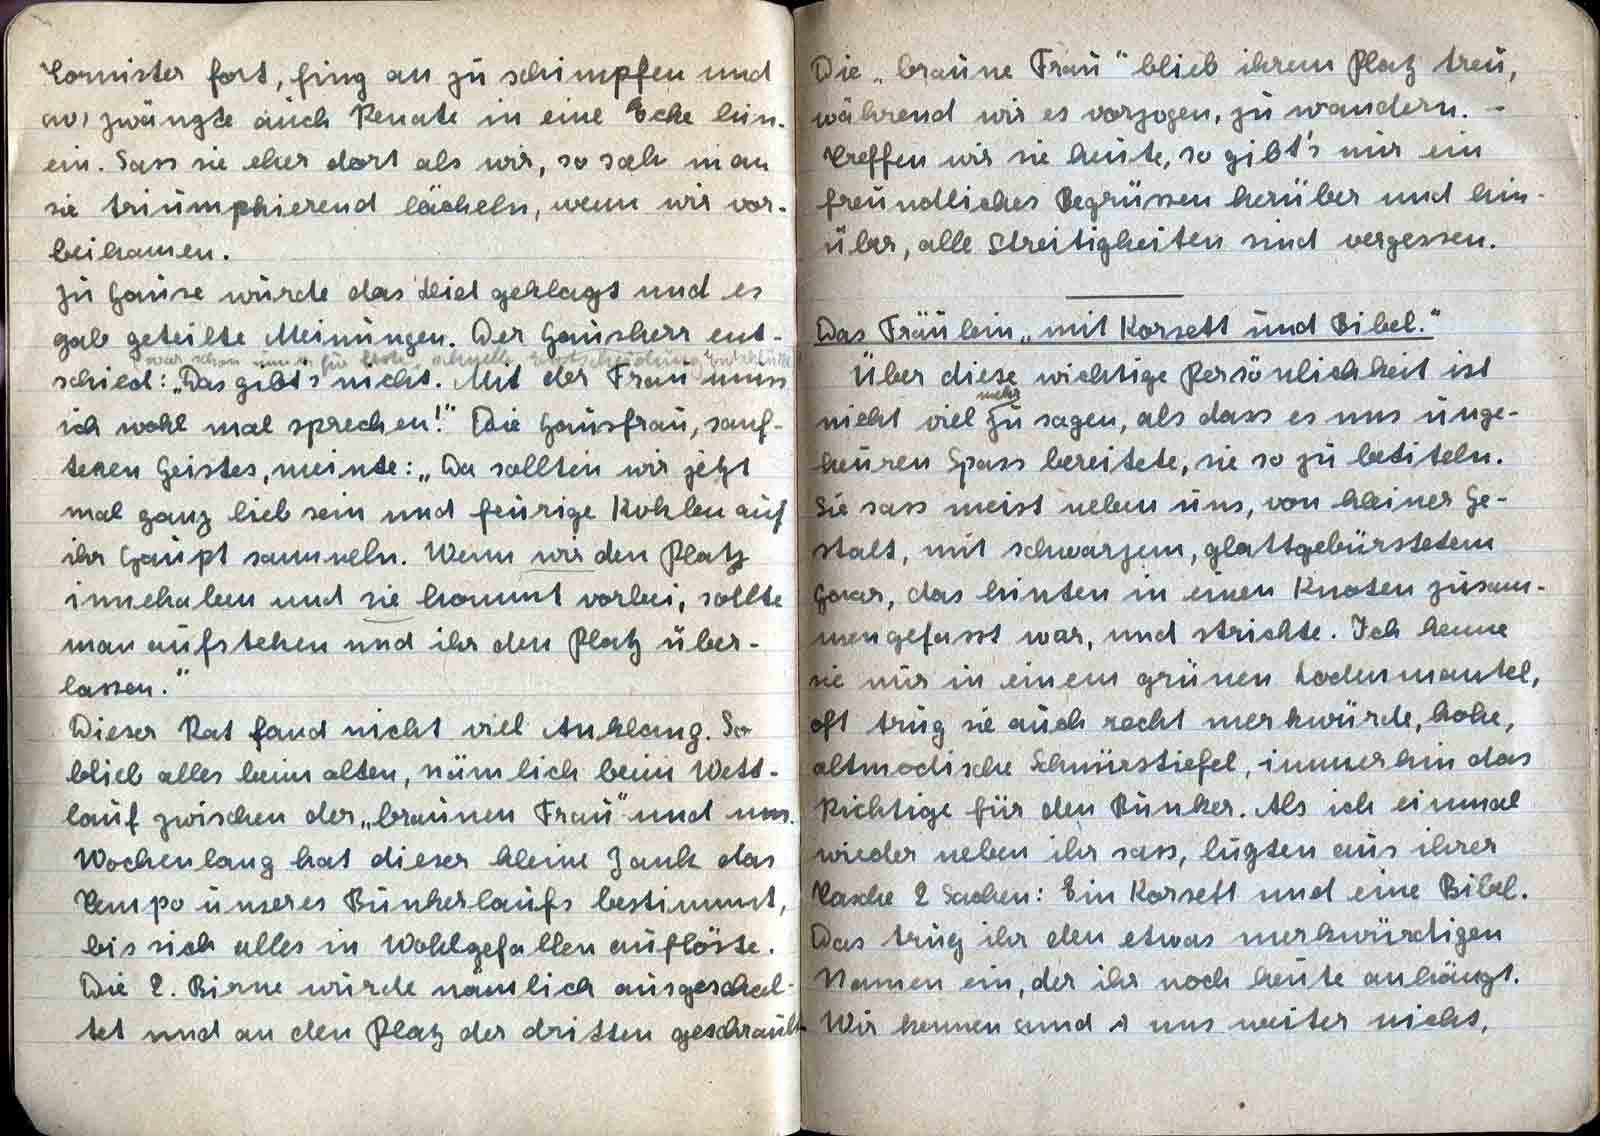 Tornister fort, fing an zu schimpfen und
zwängte auch Renate in eine Ecke hin-
ein. Sass sie eher dort als wir, so sah man
sie triumphierend lächeln, wenn wir vor-
beikamen.
Zu Hause wurde das Leid geklagt und es
gab geteilte Meinungen. Der Hausherr ent-
war schon immer für kurze, schnelle Entscheidung
schied: „Das gibt's nicht. Mit der Frau muss
ich wohl mal sprechen!" Die Hausfrau, sanf-
teren Geistes, meinte: „Da sollten wir jetzt
mal ganz lieb sein und feurige Kohlen auf
ihr Haupt sammeln. Wenn wir den Platz
innehaben und sie kommt vorbei, sollte
man aufstehen und ihr den Platz über-
lassen."
Dieser Rat fand nicht viel Anklang. So
blieb alles beim alten, nämlich beim Wett-
lauf zwischen der „braunen Frau" und uns.
Wochenlang hat dieser kleine Zank das
Tempo unseres Bunkerlaufs bestimmt,
bis sich alles in Wohlgefallen auflöste.
Die 2. Birne wurde nämlich ausgeschal-
tet und an den Platz der dritten geschraubt
Die „braune Frau" blieb ihrem Platz treu,
während wir es vorzogen, zu wandern. –
Treffen wir sie heute, so gibt's nur ein
freundliches Begrüssen herüber und hin-
über, alle Streitigkeiten sind vergessen.
Das Fräulein „mit Korsett und Bibel."
Über diese wichtige Persönlichkeit ist
mehr
nicht viel zu sagen, als dass es uns unge-
heuren Spass bereitete, sie so zu betiteln.
Sie sass meist neben uns, von kleiner Ge-
stalt, mit schwarzem, glattgebürstetem
Haar, das hinten in einen Knoten zusam-
mengefasst war, und strickte. Ich kenne
sie nur in einem grünen Lodenmantel,
oft trug sie auch recht merkwürde, hohe,
altmodische Schnürstiefel, immerhin das
Richtige für den Bunker. Als ich einmal
wieder neben ihr sass, lugten aus ihrer
Tasche 2 Sachen: Ein Korsett und eine Bibel.
Das trug ihr den etwas merkwürdigen
Namen ein, der ihr noch heute anhängt.
Wir kennen uns weiter nicht,